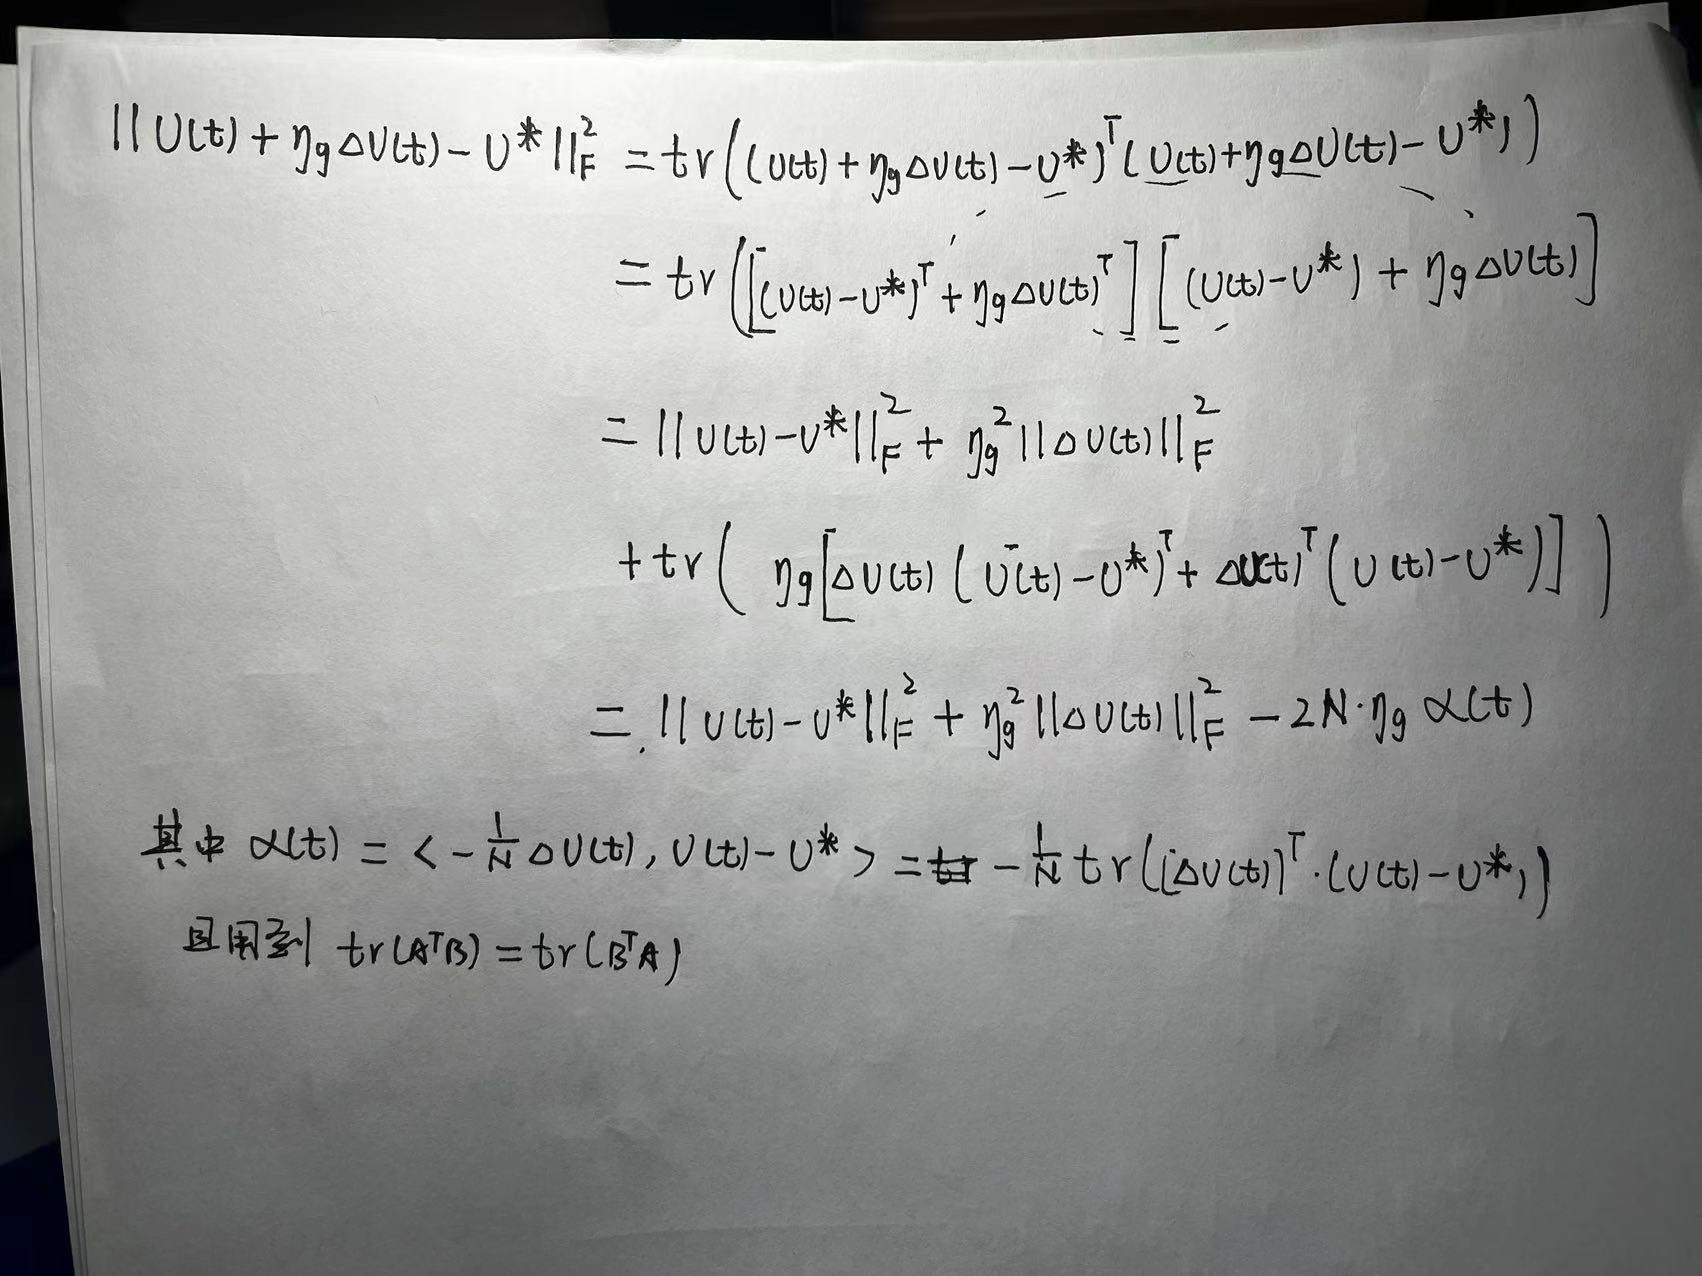 ||U(t)+ηgΔU(t)-U*||²_F = tr((U(t)+ηgΔU(t)-U*)ᵀ(U(t)+ηgΔU(t)-U*))
= tr([(U(t)-U*)ᵀ+ηgΔU(t)ᵀ][(U(t)-U*)+ηgΔU(t)]
= ||U(t)-U*||²_F + ηg²||ΔU(t)||²_F
+ tr(ηg[ΔU(t)(U(t)-U*)ᵀ+ΔU(t)ᵀ(U(t)-U*)])
= ||U(t)-U*||²_F + ηg²||ΔU(t)||²_F - 2N·ηg α(t)
其中 α(t) = <-1/N ΔU(t), U(t)-U*> = -1/N tr([ΔU(t)]ᵀ·(U(t)-U*))
且用到 tr(AᵀB) = tr(BᵀA)